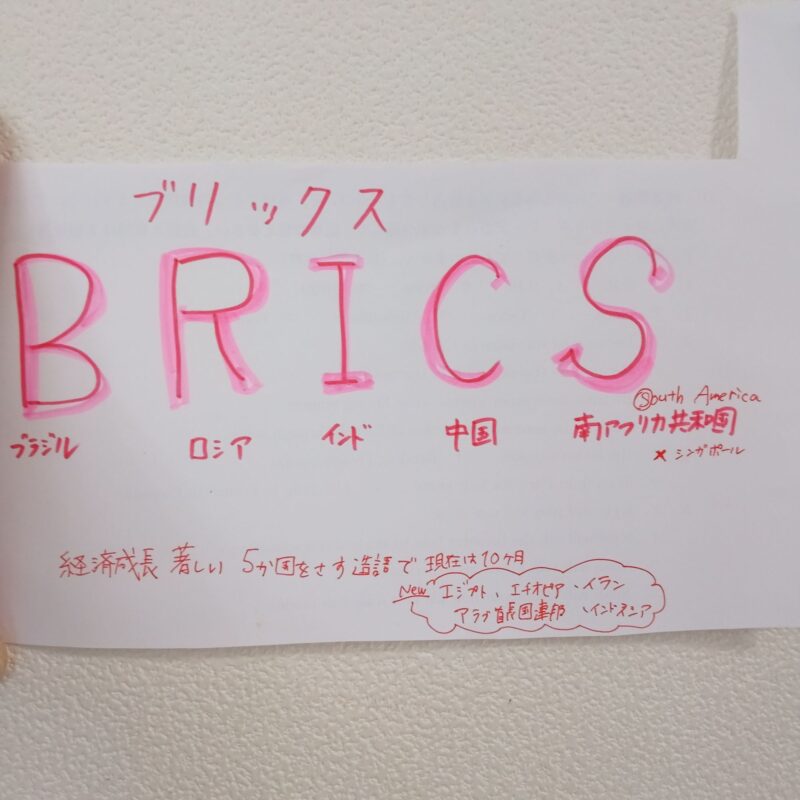 ブリックス
BRICS
South America
ブラジル ロシア インド 中国 南アフリカ共和国
× シンガポール
経済成長 著しい 5か国をさす造語で 現在は10ヶ月
New エジプト、エチオピア、イラン
アラブ首長国連邦、インドネシア